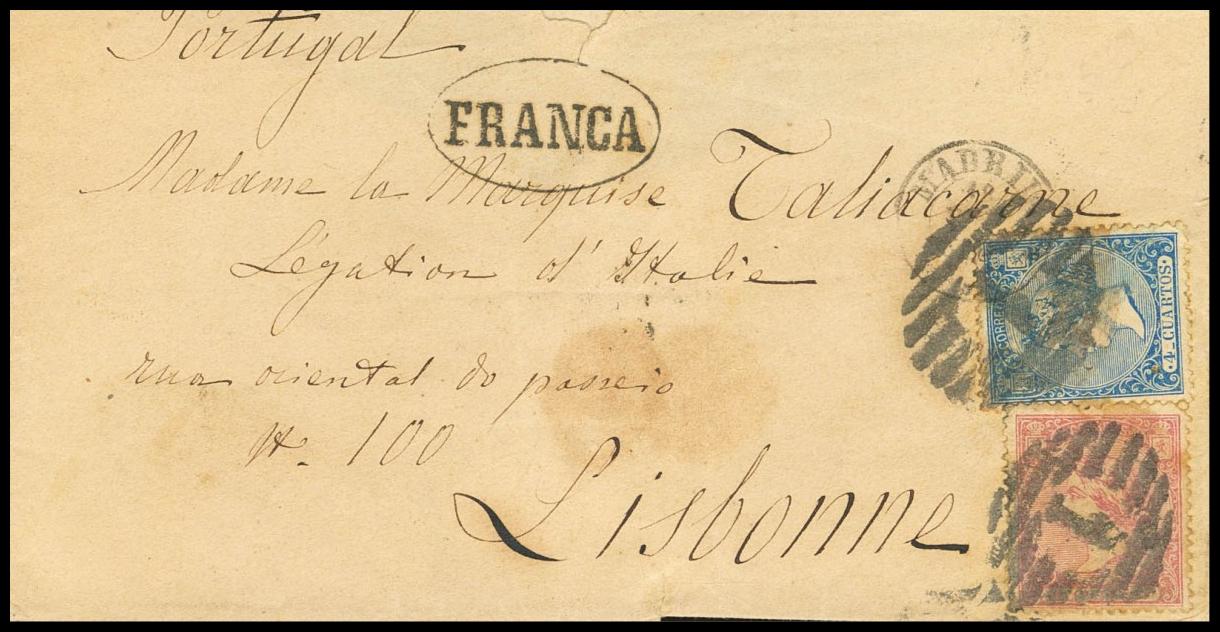 Portugal
FRANCA
Madame la Marquise Taliacarne
Légation d'Italie
rua oriental do passeio
N. 100
Lisbonne
MADRID
CORREOS
4 CUARTOS
1